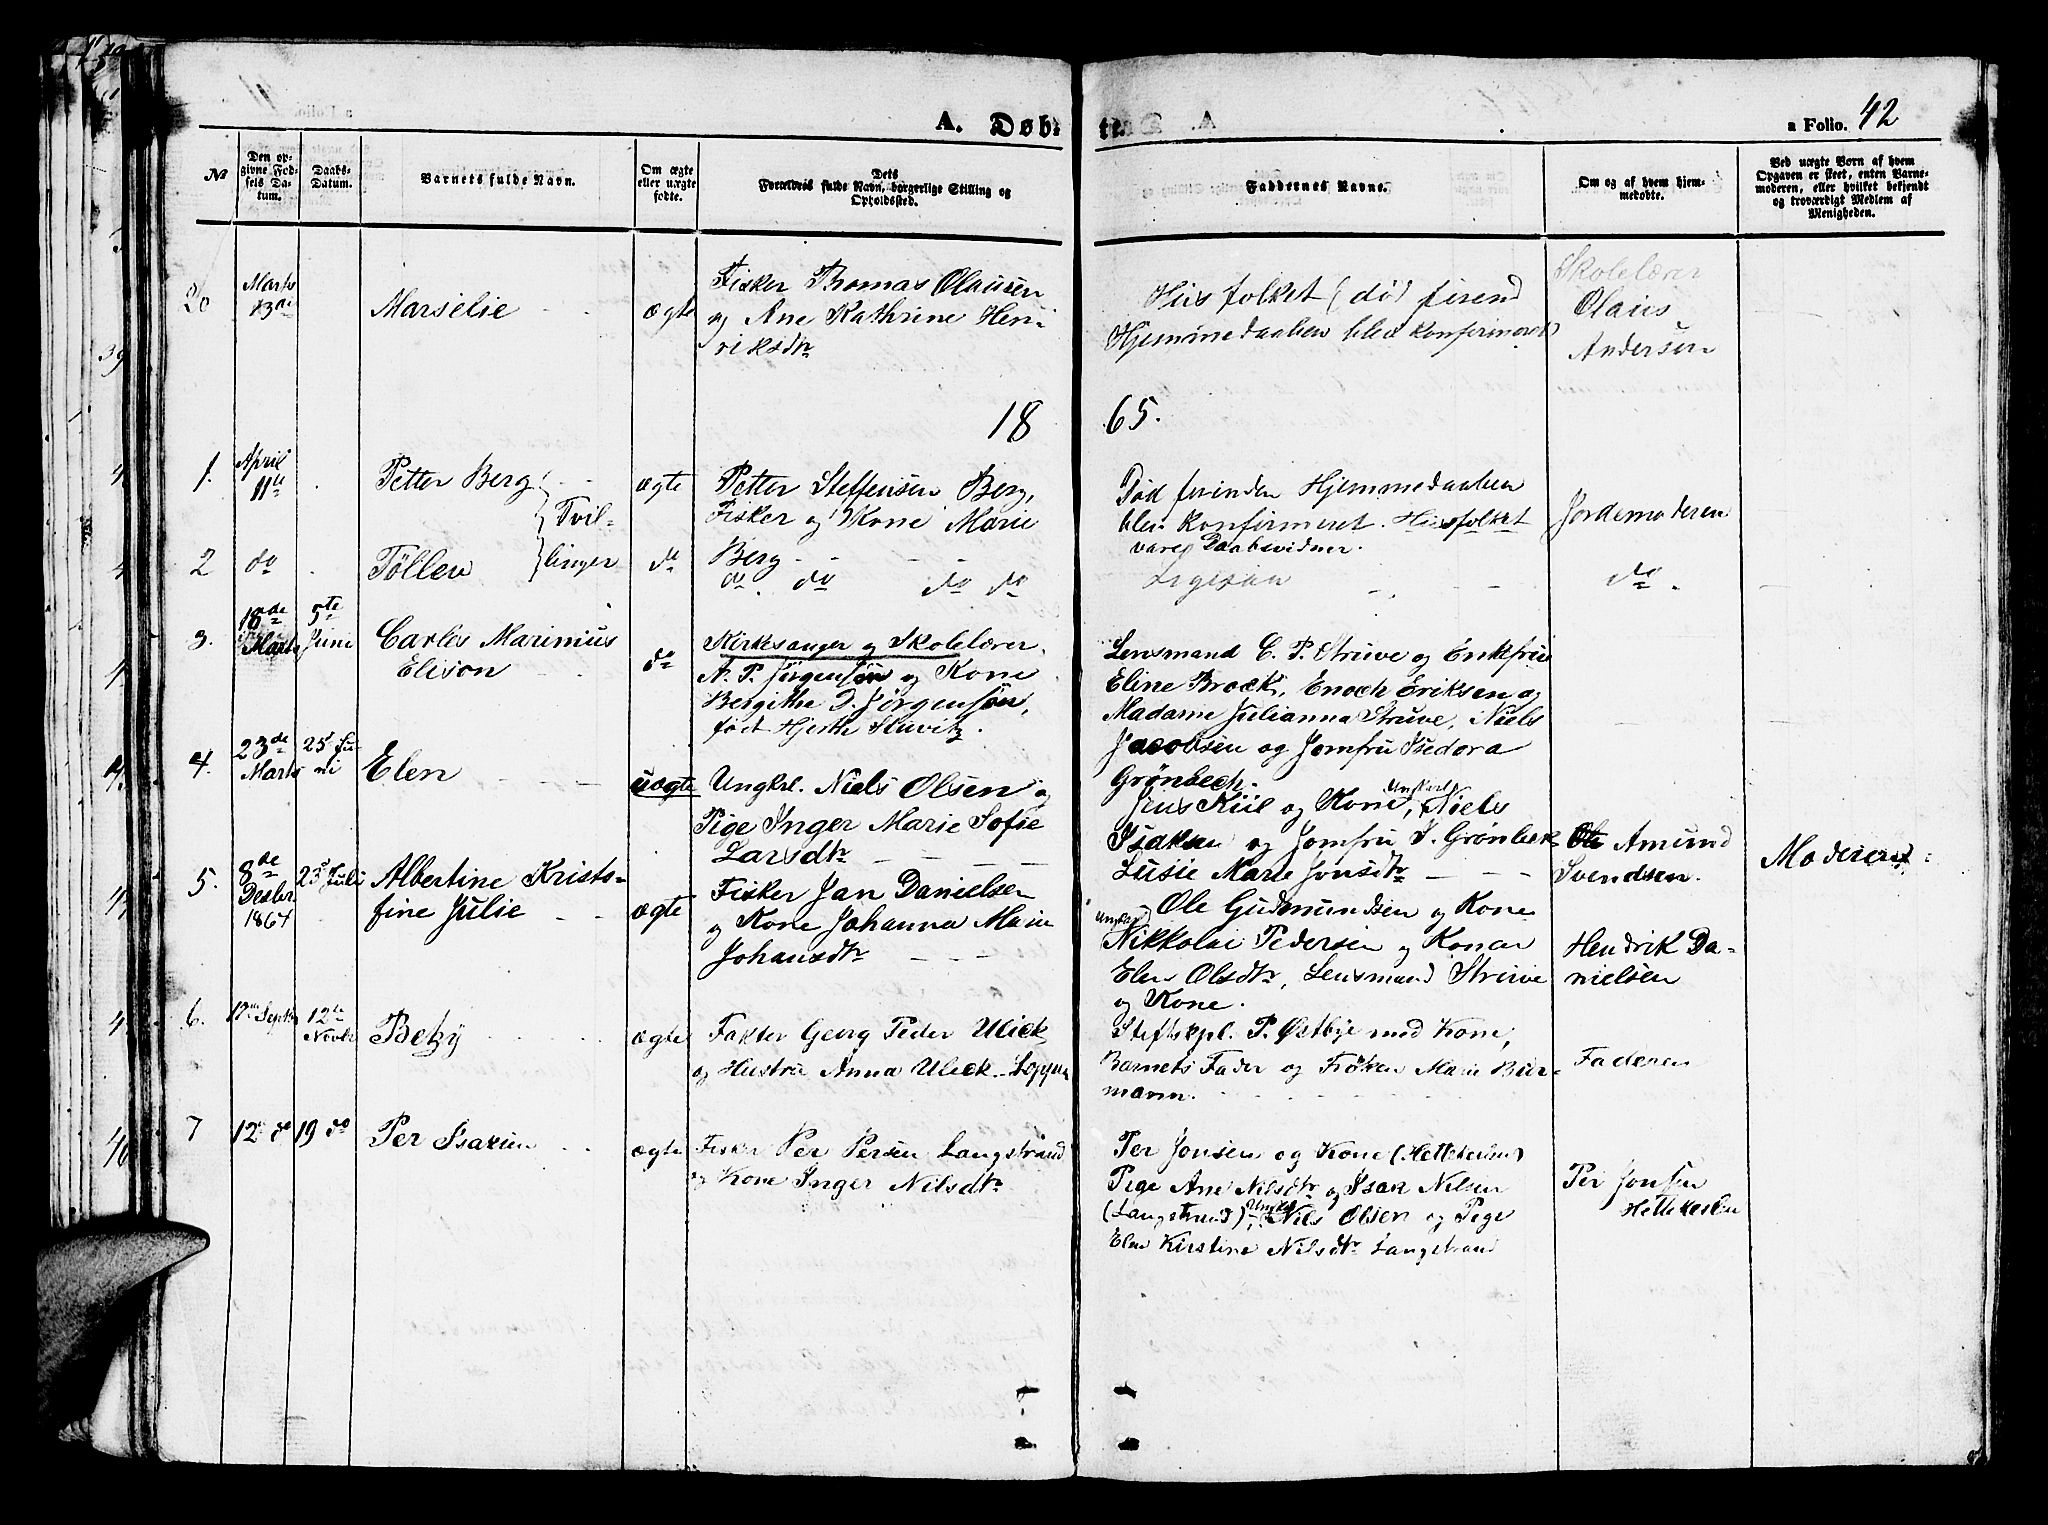 A. Døbte.
a Folio. 42
№
Den opgivne Fødsels Datum.
Daabs-Datum.
Barnets fulde Navn.
Om ægte eller uægte fødte.
Dets Forældres fulde Navn, borgerlige Stilling og Opholdssted.
Faddernes Navne.
Om og af hvem hjemmedøbte.
Ved uægte Børn af hvem Opgaven er skeet, enten Barnemoderen, eller hvilket bekjendt og troværdigt Medlem af Menigheden.
20 Marts 13de Marselie ægte
Fisker Thomas Olausen
og Ane Kathrine Hen-
riksdtr
Husfolket (død) førend
Hjemmedaaben blev konfirmeret)
Skolelærer
Olaus
Andersen
1865.
1. April 11te Petter Berg Tvil- ægte
Petter Steffensen Berg,
Fisker og Kone Marie
Berg
Død førinden Hjemmedaaben
blev konfirmeret. Husfolket
vare Daabsvidner.
Jordemoderen
2 do Töllev linger do
do. do do do
Ligesaa
do
3. 18de Marts 5te Juni Carlos Marinius
Elison do
Kirkesanger og Skolelærer
N. P. Jörgensön og Kone
Bergithe D. Jörgensön,
född Hjorth Sluvitz.
Lensmand C. P. Struve og Enkefrue
Eline Brock, Enoch Eriksen og
Madame Julianna Struve, Niels
Jacobsen og Jomfru Isedora
Grönbech.
4. 23de Marts 25 Juni Elen uægte
Ungkrl. Niels Olsen og
Pige Inger Marie Sofie
Larsdtr
Jens Kiil og Kone, Ungkarl Niels
Isaksen og Jomfru I. Grönbeck
Lusie Marie Jonsdtr
Amund
Svendsen.
Moderen
5. 8de Desbr 1864 23 Juli Albertine Kristo-
fine Julie ægte
Fisker Jan Danielsen
og Kone Johanna Marie
Johansdtr
Ole Gudmundsen og Kone
Ungkarl Nikkolai Pedersen og Konen
Elen Olsdtr, Lensmand Struve
og Kone.
Hendrik Da-
nielsen
6. 17 Septbr 12te Novbr Betzy ægte
Faktor Georg Peder Ulick
og Hustru Anna Ulick. Loppen
Stiftskpl. P. Østbye med Kone,
Barnets Fader og Fröken Marie Bur-
mann.
Faderen
7 12 do 19 do Per Isarun ægte
Fisker Per Persen Langstrand
og Kone Inger Nilsdtr
Per Jonsen og Kone (Hettekeslen)
Pige Ane Nilsdtr og Isak Nilsen
(Langstrand), Ungkl Nils Olsen og Pige
Elen Kirstine Nilsdtr Langstrand
Per Jonsen
Hettekeslen